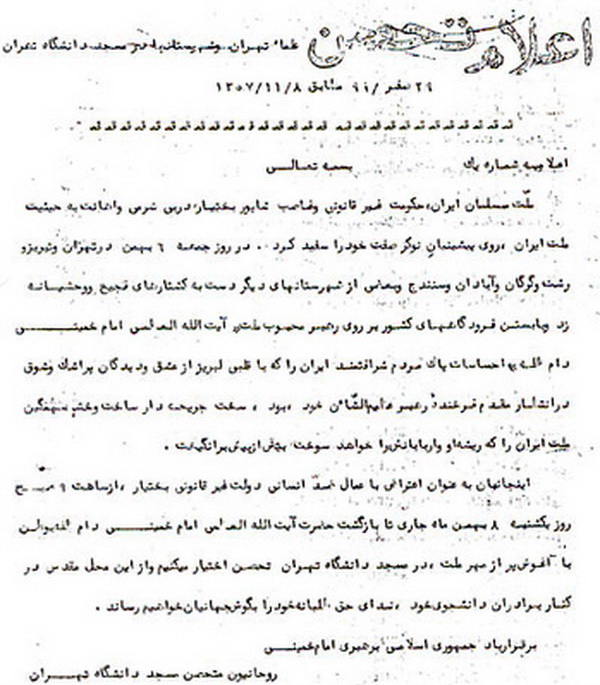 اعلام تحصن علماء تهران وشهرستانها در مسجد دانشگاه تهران
۲۹ صفر /۹۹ مطابق ۱۳۵۷/۱۱/۸
اعلامیه شماره یك بسمه تعالی
ملّت مسلمان ایران، حکومت غیر قانونی وغاصب شاپور بختیار، در بی شرمی واهانت به حیثیت
ملت ایران ، روی پیشینیان نوکر صفت خود را سفید کرد . . در روز جمعه ۶ بهمن در تهران وتبریز و
رشت وگرگان وآبادان وسنندج وبعضی از شهرستانهای دیگر دست به کشتارهای فجیع ووحشیانه
زد وبا بستن فرودگاههای کشور بر روی رهبر محبوب ملت، آیت الله العظمی امام خمینی
دام ظله به احساسات پاك مردم شرافتمند ایران را که با قلبی لبریز از عشق ودیدگان پر اشك وشوق
در انتظار مقدم فرخنده رهبر عظیم الشأن خود ، بود ، سخت جریحه دار ساخت وخشم سهمگین
ملت ایران را که ریشه او واربابانش را خواهد سوخت بیش از پیش برانگیخت .
اینجانبان به عنوان اعتراض با عمال ضدّ انسانی دولت غیر قانونی بختیار ، از ساعت ۹ صبح
روز یکشنبه ۸ بهمن ماه جاری تا بازگشت حضرت آیت الله العظمی امام خمینی دام ظله
با آغوش پر از مهر ملت ، در مسجد دانشگاه تهران تحصن اختیار میکنیم واز این محل مقدس در
کنار برادران دانشجوی خود ، ندای حق طلبانه خود را بگوش جهانیان خواهیم رساند .
برقرار باد جمهوری اسلامی برهبری امام خمینی
روحانیون متحصن مسجد دانشگاه تهران